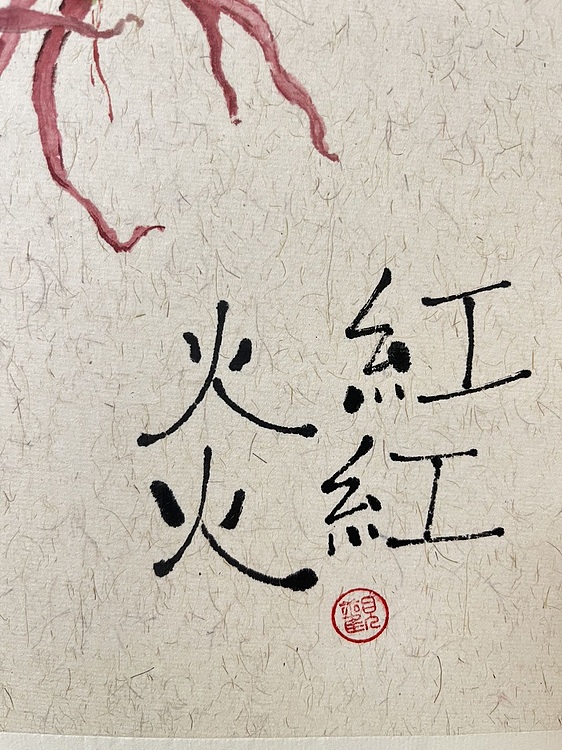 紅紅
火火
觀